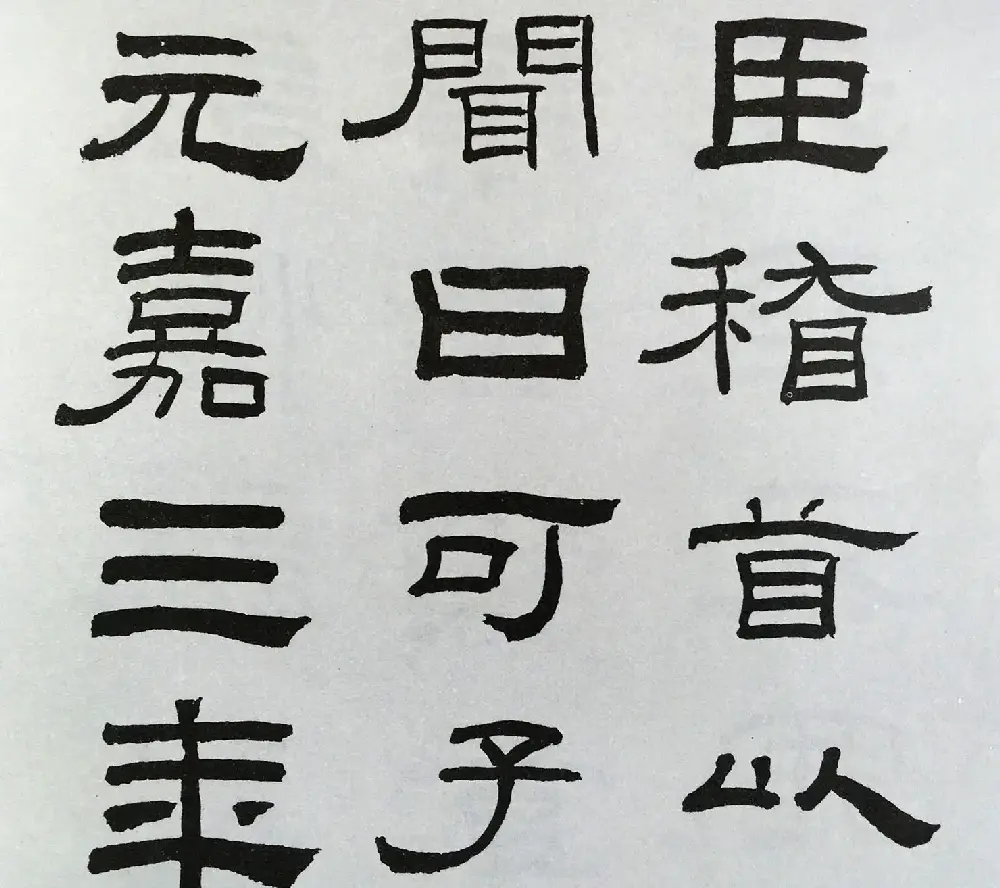 臣稽首以
聞曰可子
元嘉三年